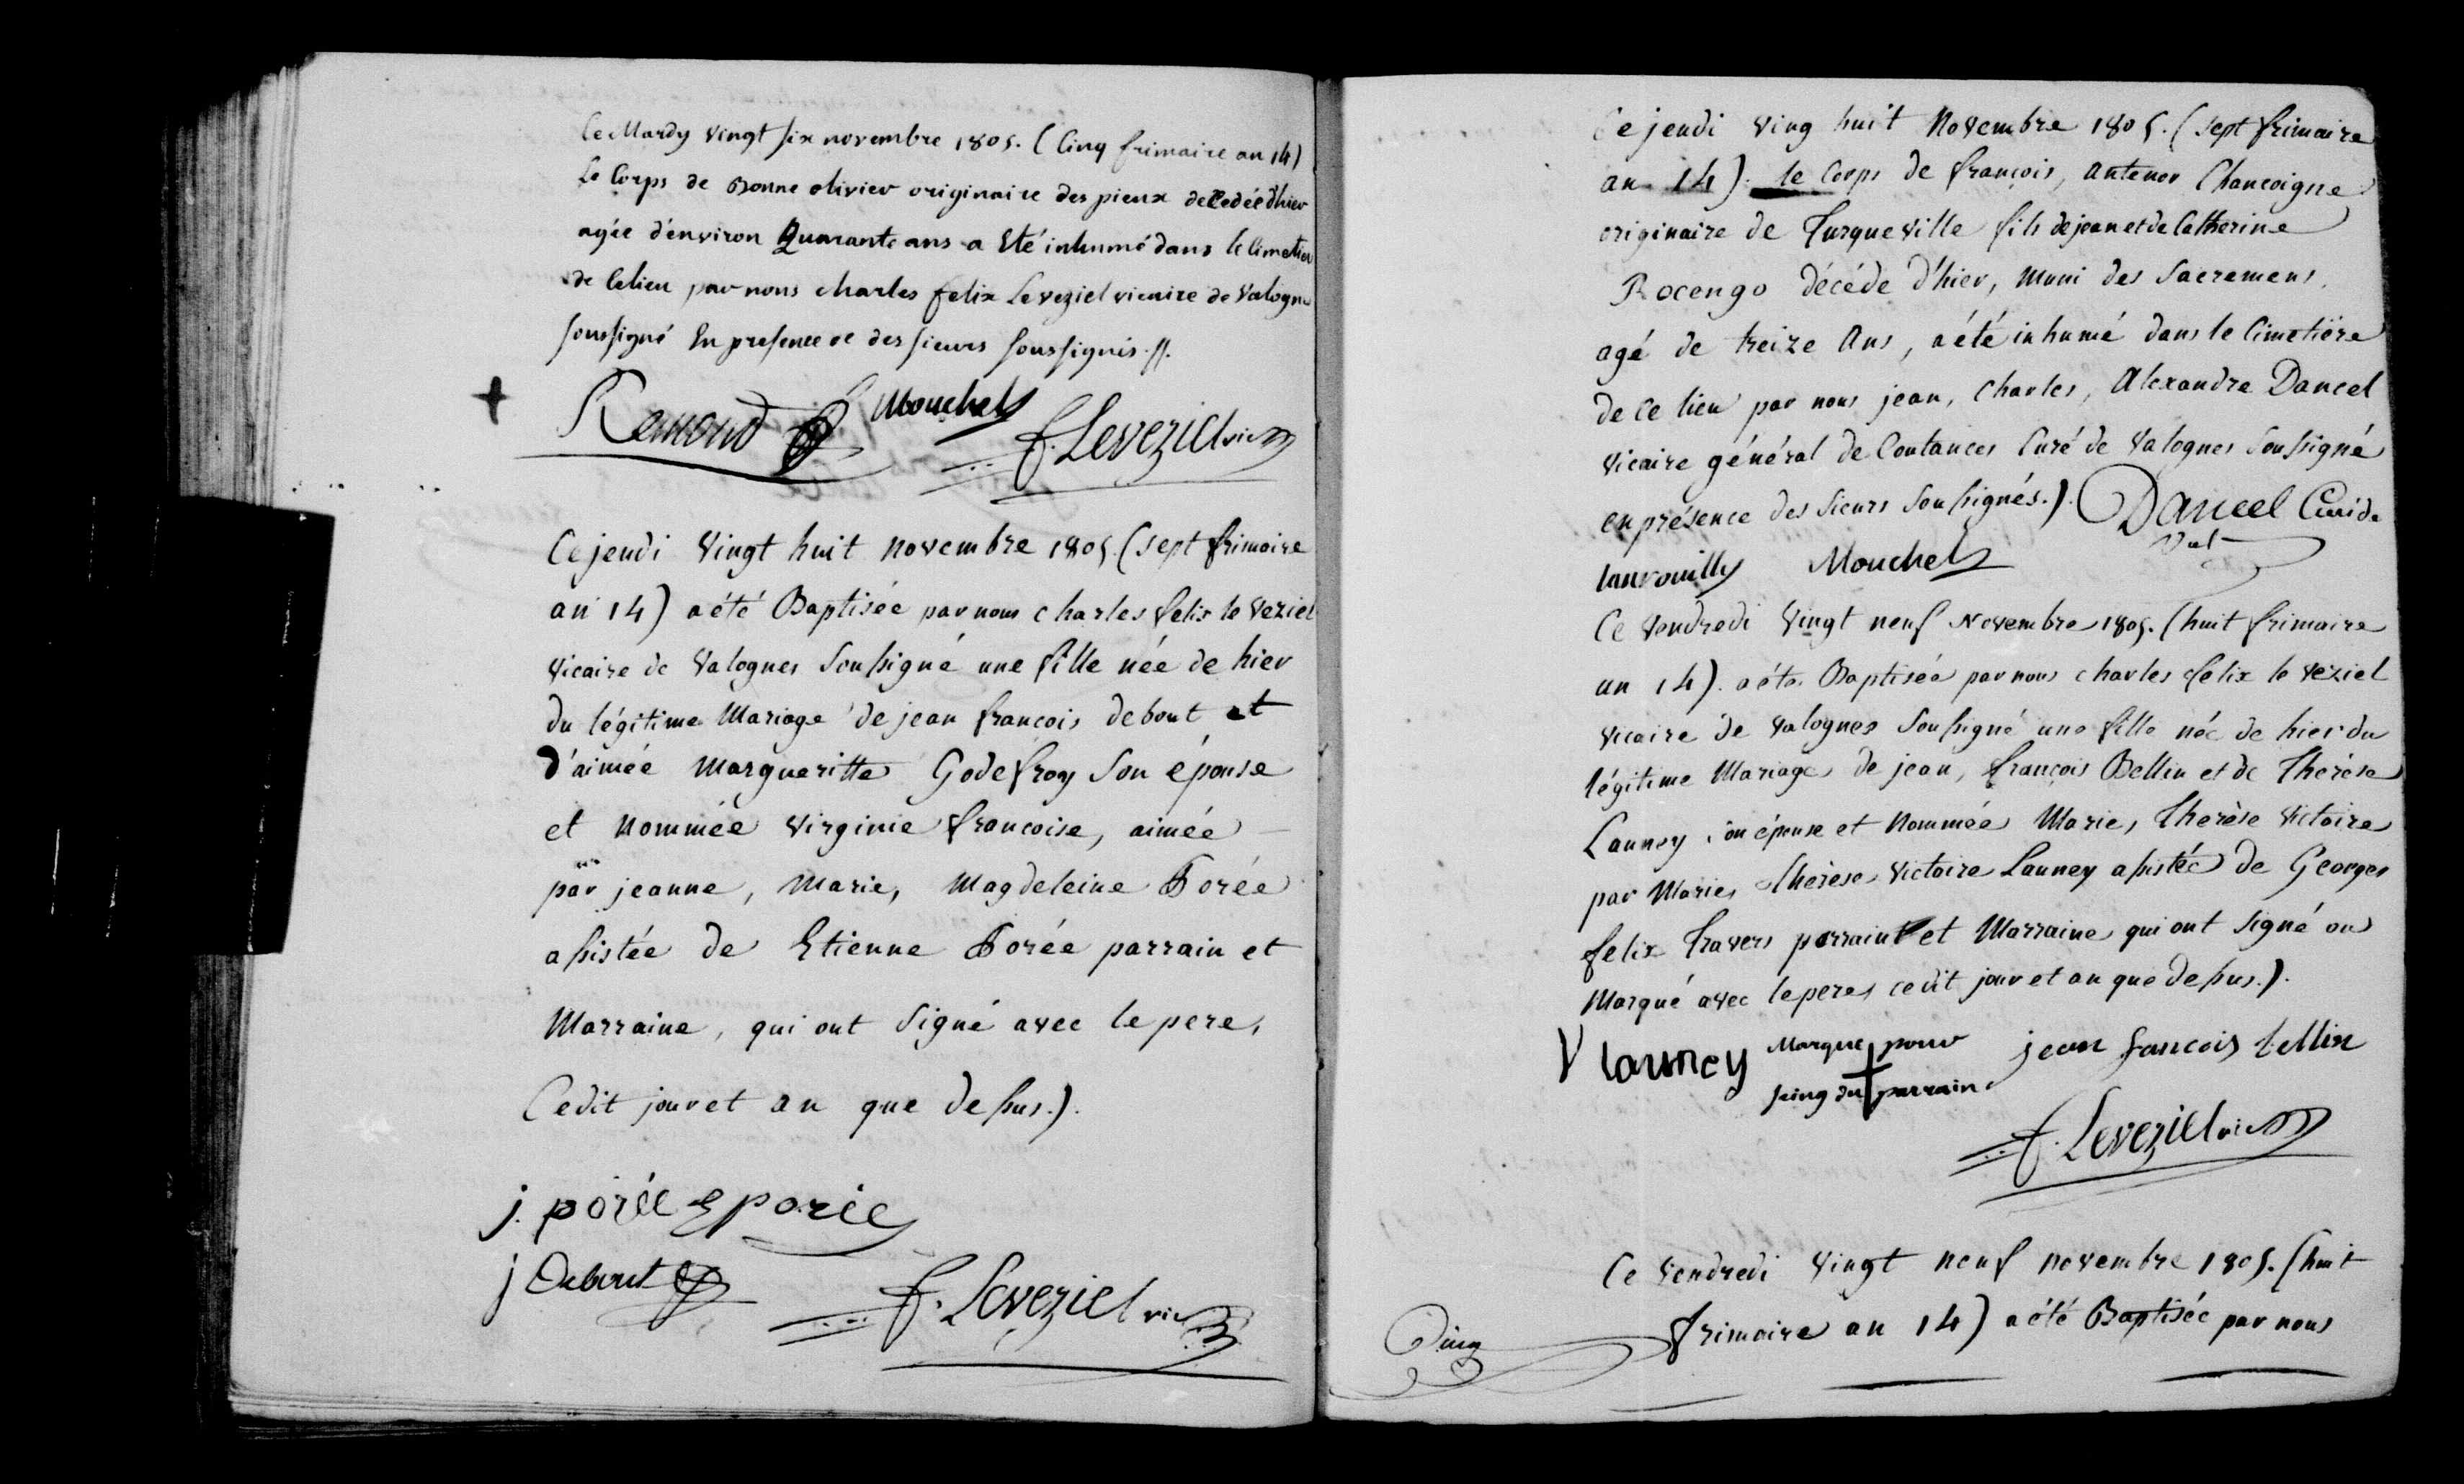 Ce Mardy vingt six novembre 1805. (Cinq frimaire an 14)
Le Corps de Bonne olivier originaire des pieux décédée d'hier
agée d'environ Quarante ans a été inhumé dans le Cimetier
de Celieu par nous charles felix Leveziel vicaire de Valognes
soussigné En presence de des sieurs soussignés.//.
Remond Mouchel f. Leveziel vic
Ce jeudi Vingt huit novembre 1805 (sept frimaire
an 14) a été Baptisée par nous charles felix le veziel
vicaire de Valognes Soussigné une fille née de hier
du légitime Mariage de jean françois debout et
d'aimée Margueritte Godefroy Son épouse
et Nommée Virginie françoise, aimée
par jeanne, Marie, Magdeleine Porée
assistée de Etienne Porée parrain et
Marraine, qui ont Signé avec le pere,
Cedit jour et an que dessus.).
j. porée E porée
j Debout f. Leveziel vic
Ce jeudi Ving huit Novembre 1805. (sept frimaire
an 14). le Corps de françois, antenor Chancoigne
originaire de Turqueville fils de jean et de Catherine
Rocengo décéde d'hier, muni des Sacremens,
agé de treize Ans, a été inhumé dans le Cimetière
de ce lieu par nous jean, Charles, Alexandre Dancel
Vicaire général de Coutances Curé de Valognes Soussigné
en présence des Sieurs Soussignés.). Dancel Curé de
Val
Mouchel
Ce Vendredi Vingt neuf Novembre 1805. (huit frimaire
an 14). a été Baptisée par nous charles félix le veziel
vicaire de Valognes Soussigné une fille née de hier du
légitime Mariage de jean, françois Bellin et de Thérèse
Launey son épouse et Nommée Marie, Therèse Victoire
par Marie, thérèse Victoire Launey assistée de Georges
felix Travers parrain et Marraine qui ont Signé ou
Marqué avec le pere cedit jour et an que dessus.).
V launey Marque pour jean francois bellin
seing du parrain
f. Leveziel vic
Ce Vendredi Vingt neuf novembre 1805. (huit
frimaire an 14) a été Baptisée par nous